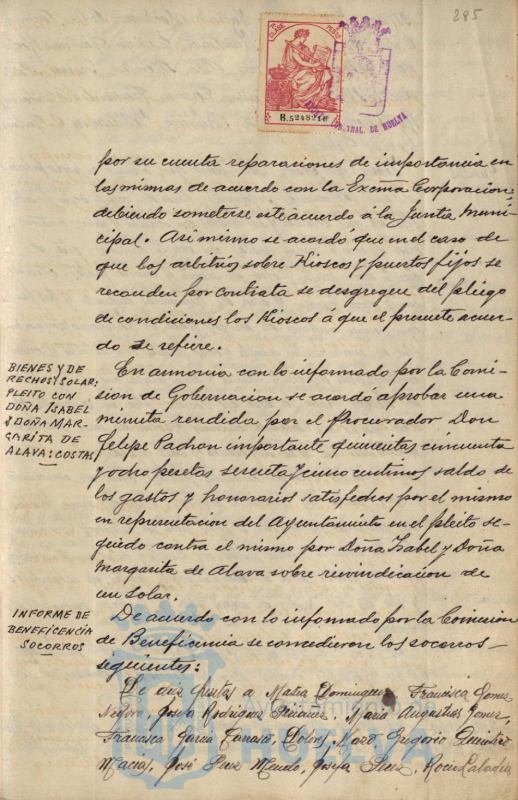 285
11ª CLASE PESETA
B.5248218
MUNICIPAL DE HUELVA
por su cuenta reparaciones de importancia en
las mismas de acuerdo con la Excma Corporacion,
debiendo someterse este acuerdo á la Junta Muni-
cipal. Asi mismo se acordó que en el caso de
que los arbitrios sobre Kioscos y puestos fijos se
recauden por contrata se desgreguen del pliego
de condiciones los Kioscos á que el presente acuer-
do se refiere.
BIENES Y DE
RECHOS Y SOLAR:
PLEITO CON
DOÑA ISABEL
Y DOÑA MAR-
GARITA DE
ALAVA: COSTAS
En armonia con lo informado por la Comi-
sion de Gobernacion se acordó aprobar una
minuta rendida por el Procurador Don
Felipe Padron importante quinientas cincuenta
y ocho pesetas sesenta y cinco centimos saldo de
los gastos y honorarios satisfechos por el mismo
en representacion del Ayuntamiento en el pleito se-
guido contra el mismo por Doña Isabel y Doña
Margarita de Alava sobre reivindicacion de
un solar.
INFORME DE
BENEFICENCIA
SOCORROS
De acuerdo con lo informado por la Comision
de Beneficencia se concedieron los socorros
siguientes:
De seis pesetas a Matea Dominguez, Francisca Gomez
Negro, Josefa Rodriguez, Maria Angustias Gomez,
Francisca Garcia Carrasco, Dolores, Gregorio Quintero
Macias, José Perez Mendo, Josefa Perez, Rocio Labadia
Ayuntamiento de
HUELVA